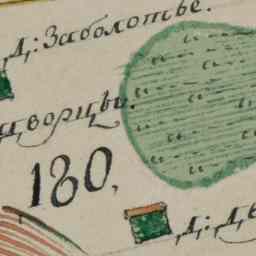 Д: Заболотье.
дворцы.
180,
Д: Дв